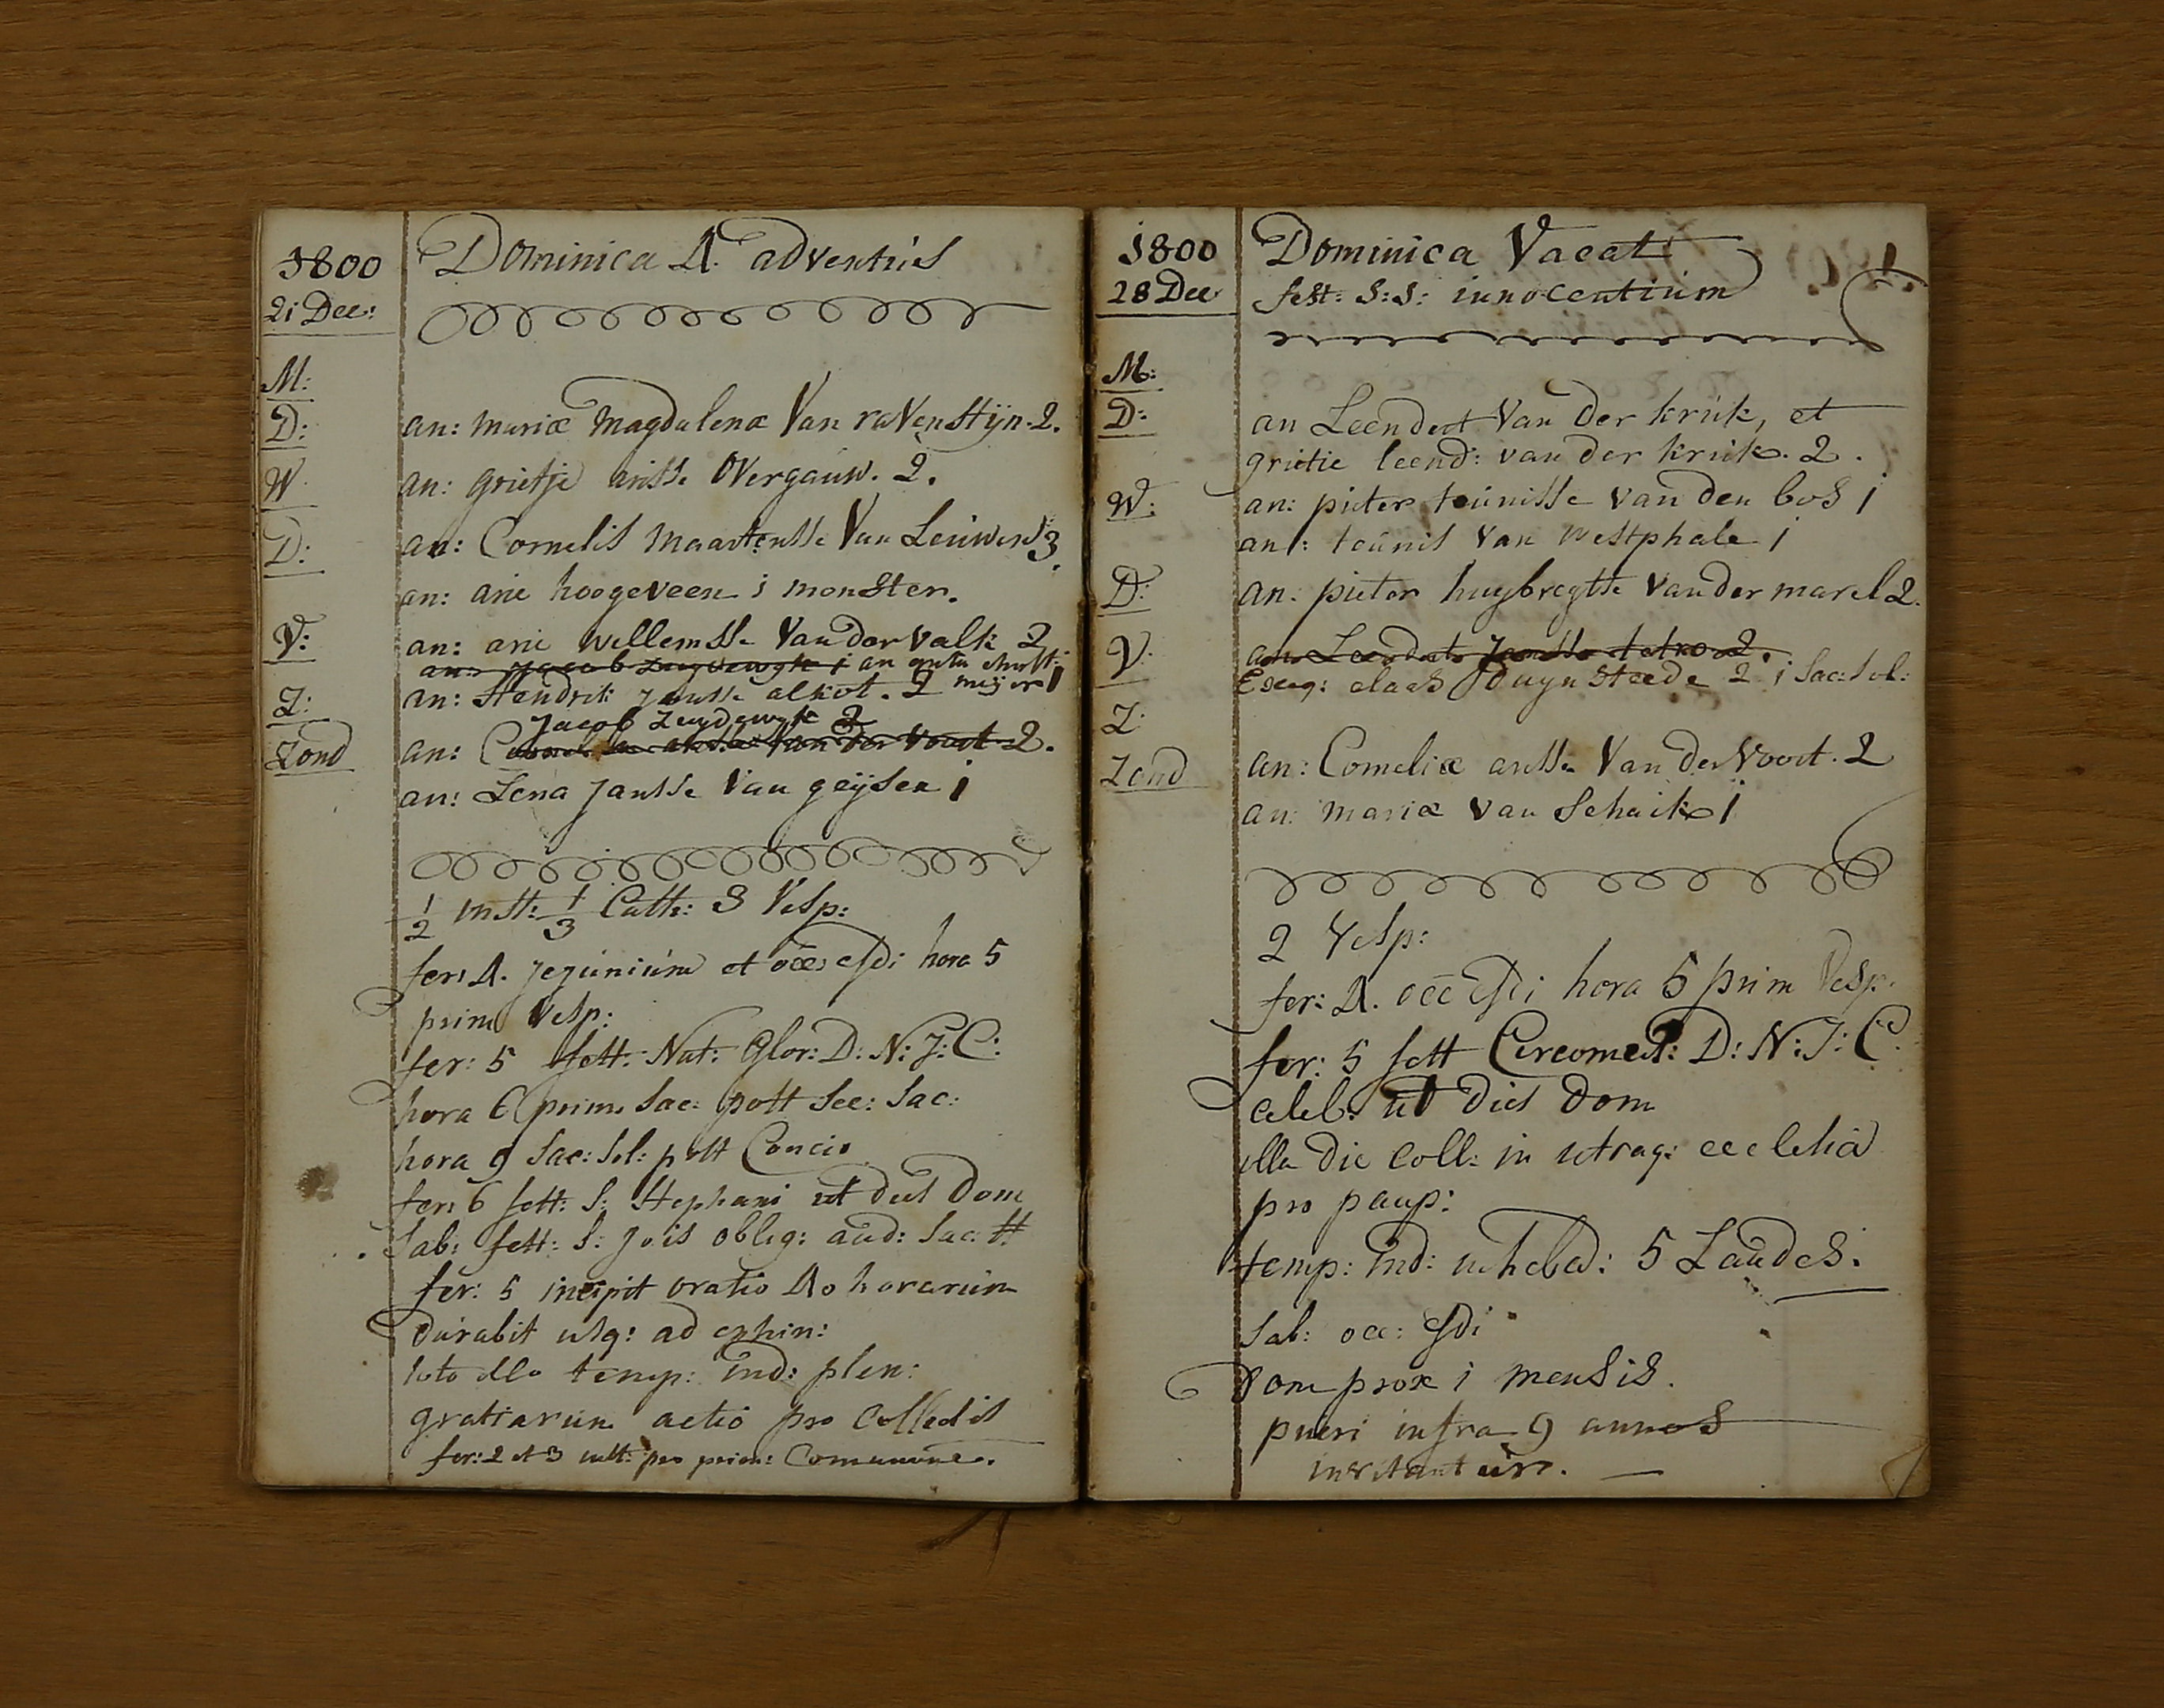 1800
21 Dec:
Dominica 4. adventus
M:
D: an: mariæ magdalenæ Van ravenstijn. 2.
W an: grietje arisse overgauw. 2.
D: an: Cornelis maartensse Van Leuwen 3.
an: arie hoogeveen i monster.
V: an: arie willemsse Van der valk 2
an: Jacob zuydewyk i an
Z: an: Hendrik Jansse alkot. 2 meijer 1
Jacob Zuydewyk 2
Zond an: Van der voort 2.
an: Lena Jansse Van geijsen i
1/2 inst: 1/3 Cath: 3 Vesp:
fer: 4. jejunium et occ: esdi hora 5
prim Vesp:
fer: 5 fest: Nat: Glor: D: N: J: C:
hora 6 prim sac: post sec: sac:
hora 9 sac: sol: post Concio
fer: 6 fest: S: Stephani ut dies Dom
Sab: fest: S: Jois oblig: aud: sac: tt
fer: 5 incipit oratio 40 horarum
durabit usq: ad ephin:
toto illo temp: ind: plen:
gratiarum actio pro Collectis
fer: 2 et 3 inst: pro prim: Comunione.
1800
28 Dec
Dominica Vacat
fest: S:S: innocentium
M:
D: an Leendert Van der kruk, et
grietie leend: van der kruk. 2.
W: an: pieter teunisse van den bos i
an: teunis Van westphale i
D: an: pieter huybregtse Van der marel 2.
V: an: Leendert Jansse tetro 2.
Exeq: claas Duynsteede 2 i Sac: sol:
Z:
Zond an: Corneliæ arisse Van der Voort. 2
an: mariæ van Schaik i
2 Vesp:
fer: 4. occ esdi hora 5 prim Vesp.
fer: 5 fest Circomcis: D: N: J: C.
celeb: ut dies Dom
illa die Coll: in utraq: ecclesia
pro paup:
temp: ind: hebd: 5 Laudes.
Sab: occ: esdi
Dom prox i mensis.
pueri infra 9 annos
invitantur.